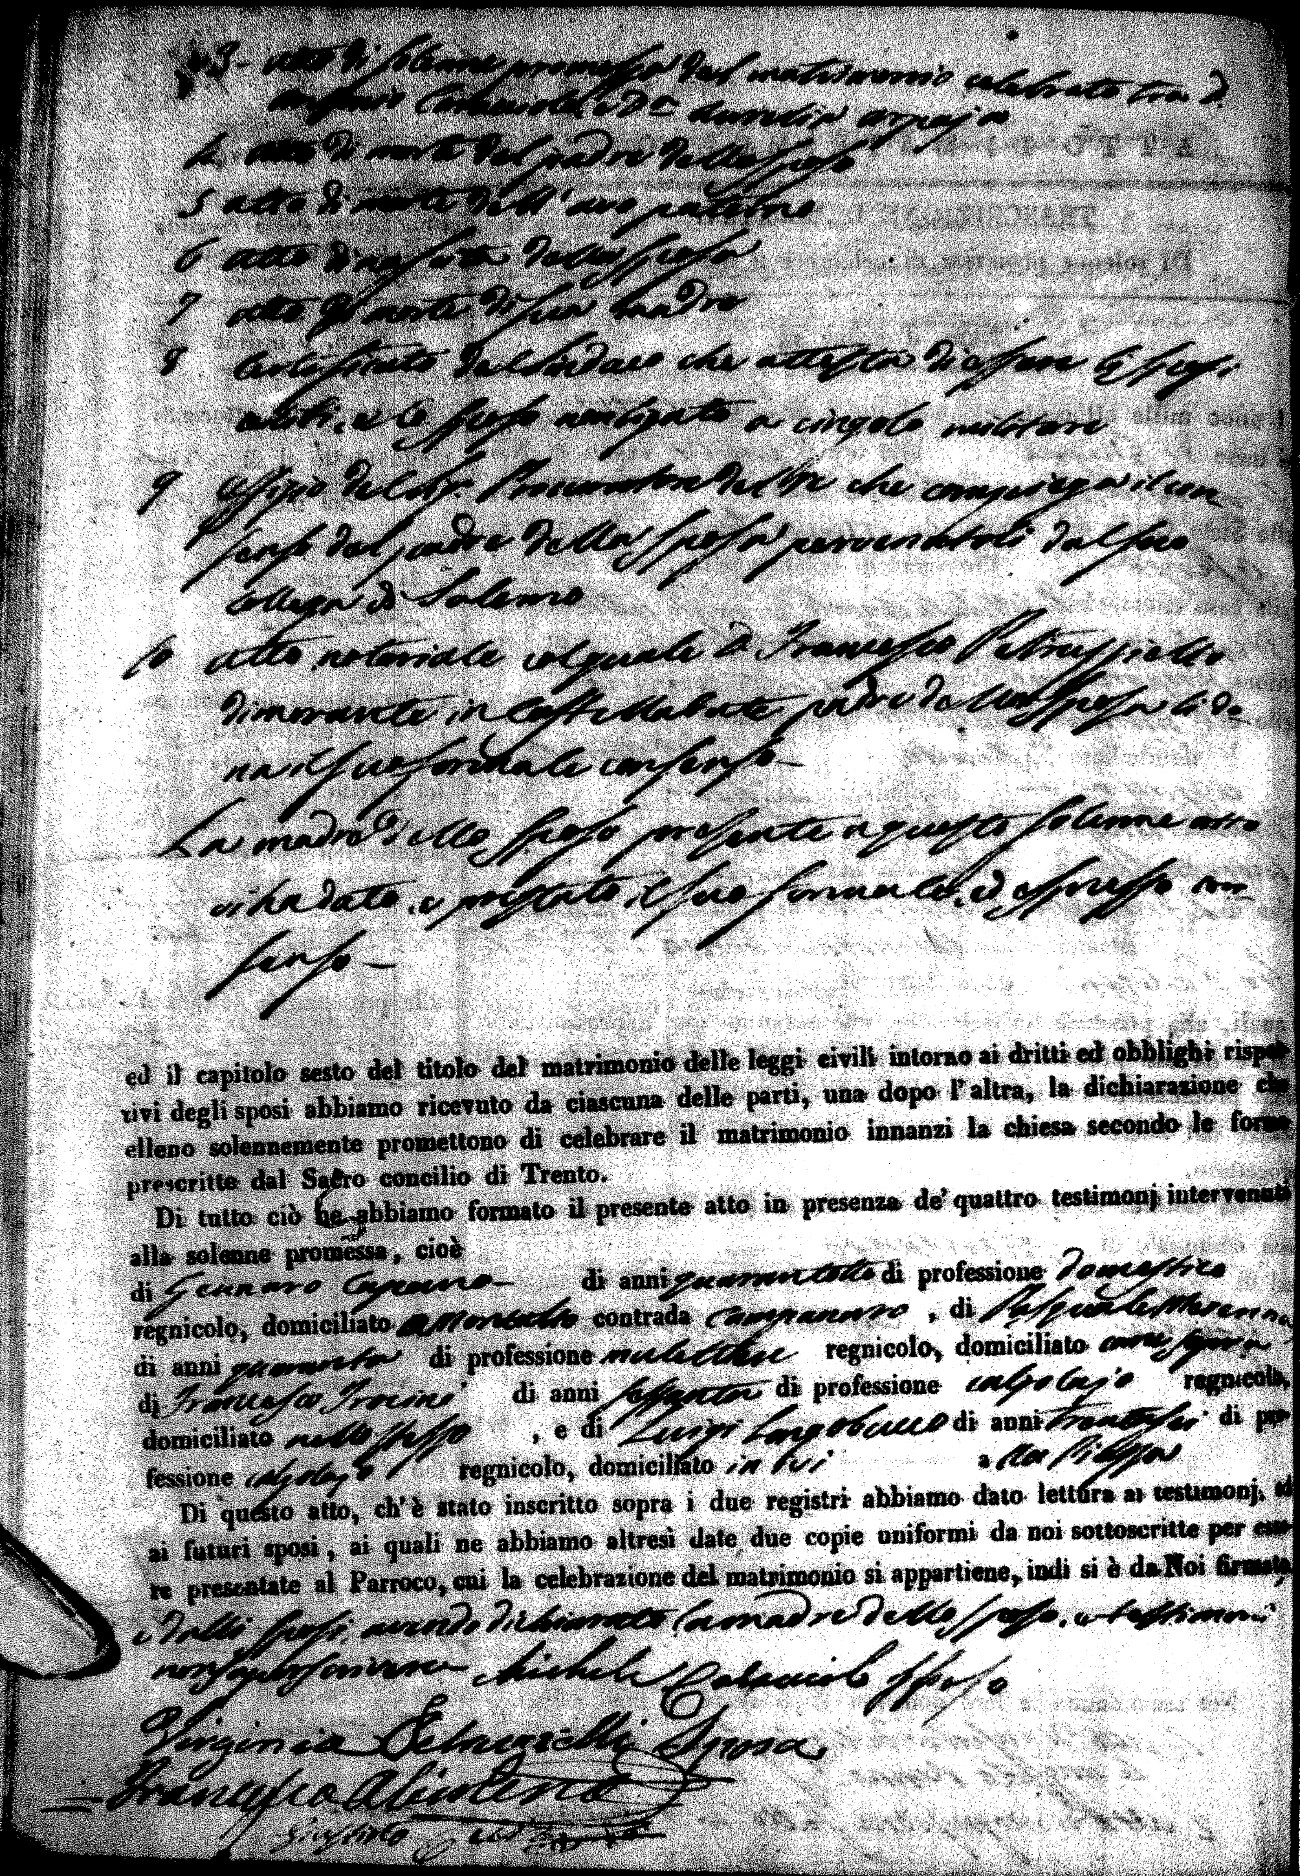 3- atto di solenne promessa del matrimonio celebrato tra D.
Caracciolo, e D.a Aurelia
4. atto di morte del padre dello sposo
5 atto di morte dell'avo paterno
6 atto di nascita della sposa
7 atto di morte di sua madre
8 Certificato del Sindaco che attesta di essere gli sposi
celibi, e lo sposo non ligato a cingolo militare
9 Offizio del Sig.r Procuratore del Re che compiega il con
senso del padre della sposa pervenutoli dal suo
collega di Salerno
10 atto notariale col quale D. Francesco Petruzzielli
dimorante in Castellabate, padre della sposa li do
na il suo formale consenso-
La madre dello sposo presente a questo solenne atto
vi ha dato, e prestato il suo formale, ed espresso con
senso-
ed il capitolo sesto del titolo del matrimonio delle leggi civili intorno ai dritti ed obblighi rispet-
tivi degli sposi abbiamo ricevuto da ciascuna delle parti, una dopo l'altra, la dichiarazione che
elleno solennemente promettono di celebrare il matrimonio innanzi la chiesa secondo le forme
prescritte dal Sacro concilio di Trento.
Di tutto ciò ne abbiamo formato il presente atto in presenza de' quattro testimonj intervenuti
alla solenne promessa, cioè
di Gennaro Capuano- di anni quarantotto di professione domestico
regnicolo, domiciliato contrada Campanaro , di Pasquale
di anni quaranta di professione mulattiere regnicolo, domiciliato come sopra
di Francesco di anni sessanta di professione calzolajo regnicolo,
domiciliato nello stesso , e di Luigi Longobucco di anni trentasei di pro-
fessione calzolajo regnicolo, domiciliato in ivi a
Di questo atto, ch'è stato inscritto sopra i due registri abbiamo dato lettura ai testimonj, ed
ai futuri sposi, ai quali ne abbiamo altresì date due copie uniformi da noi sottoscritte per esse-
re presentate al Parroco, cui la celebrazione del matrimonio si appartiene, indi si è da Noi firmato
e dalli sposi, avendo dichiarato la madre dello sposo, e testimoni
non saper scrivere- Michele Caracciolo sposo
Virginia Petruzzielli Sposa
Francesco